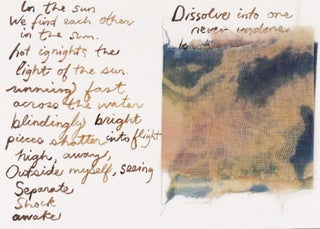 In the sun
We find each other
in the sun.
hot ignights the
light of the sun.
running fast
across the water
blindingly bright
pieces shatter into flight
high, away,
Outside myself, seeing
Separate
Shock
awake
Dissolve into one
never undone